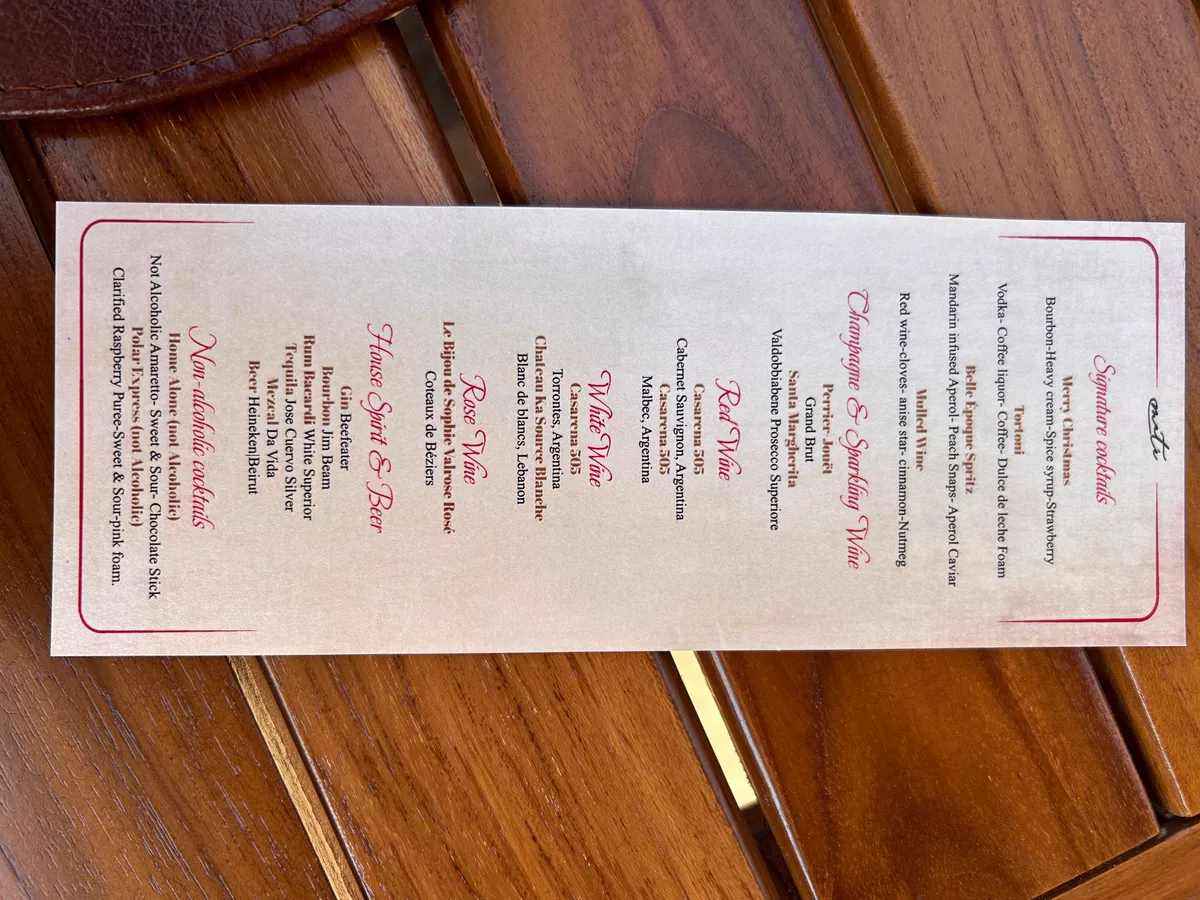 Signature cocktails
Merry Christmas
Bourbon-Heavy cream-Spice syrup-Strawberry
Tortoni
Vodka- Coffee liquor- Coffee- Dulce de leche Foam
Belle Époque Spritz
Mandarin infused Aperol- Peach Snaps- Aperol Caviar
Mulled Wine
Red wine-cloves- anise star- cinnamon-Nutmeg
Champagne & Sparkling Wine
Perrier-Jouët
Grand Brut
Santa Margherita
Valdobbiabene Prosecco Superiore
Red Wine
Casarena 505
Cabernet Sauvignon, Argentina
Casarena 505
Malbec, Argentina
White Wine
Casarena 505
Torrontes, Argentina
Chateau Ka Source Blanche
Blanc de blancs, Lebanon
Rose Wine
Le Bijou de Sophie Valrose Rosé
Coteaux de Béziers
House Spirit & Beer
Gin Beefeater
Bourbon Jim Beam
Rum Bacardi White Superior
Tequila Jose Cuervo Silver
Mezcal Da Vida
Beer Heineken|Beirut
Non-alcoholic cocktails
Home Alone (not Alcoholic)
Not Alcoholic Amaretto- Sweet & Sour- Chocolate Stick
Polar Express (not Alcoholic)
Clarified Raspberry Puree-Sweet & Sour-pink foam.